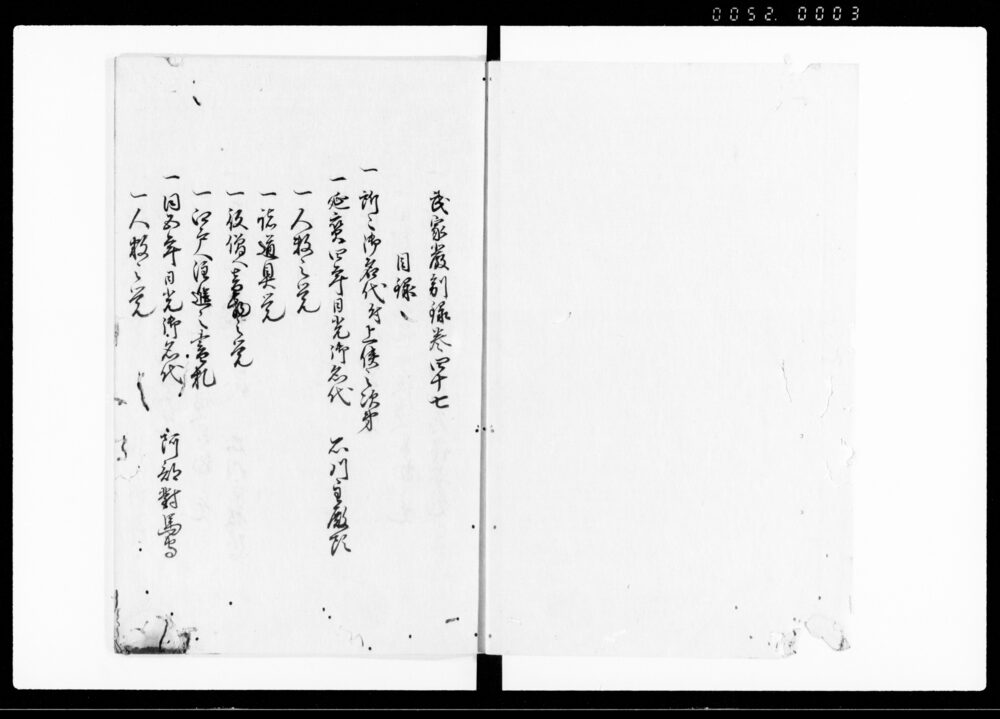 0052. 0003
民家厳制録巻四十七
目録
一 所々御名代付上使之次第
一 延宝四年日光御名代 石川主殿頭
一 人数之覚
一 諸道具覚
一 役僧人音物之覚
一 江戸人注進之書札
一 同五年日光御名代 阿部対馬守
一 人数之覚